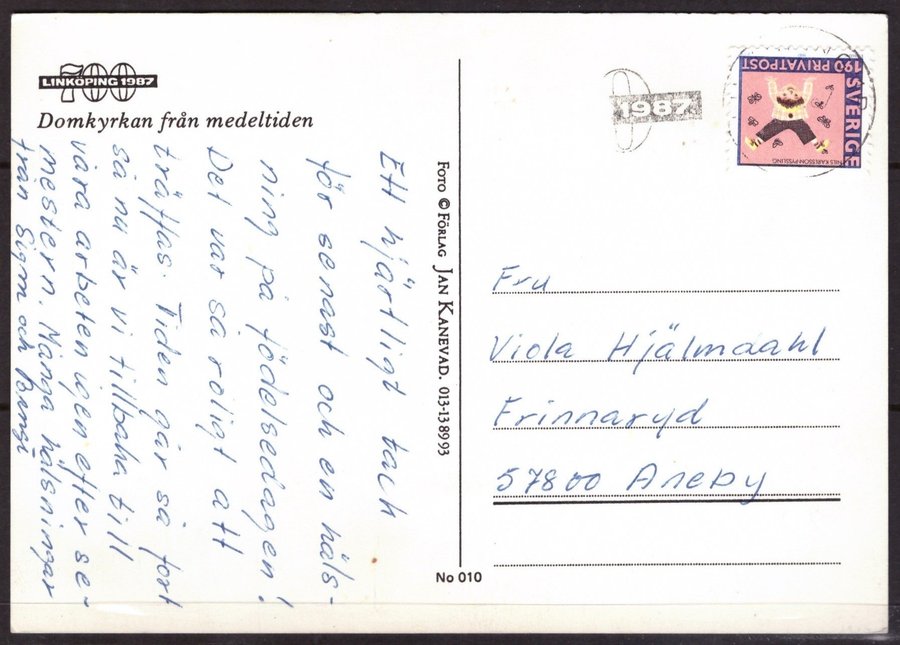 700
LINKÖPING 1987
Domkyrkan från medeltiden
Ett hjärtligt tack
för senast och en häls-
ning på födelsedagen!
Det var så roligt att
träffas. Tiden går så fort
så nu är vi tillbaka till
våra arbeten igen efter se-
mestern. Många hälsningar
från Sigm och Bengt
FOTO © FÖRLAG JAN KANEVAD. 013-138993
No 010
1987
SVERIGE
190 PRIVATPOST
NILS KARLSSON-PYSSLING
Fru
Viola Hjälmdahl
Frinnaryd
57800 Aneby